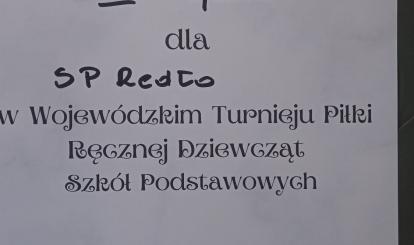 dla
SP Redło
w Wojewódzkim Turnieju Piłki
Ręcznej Dziewcząt
Szkół Podstawowych